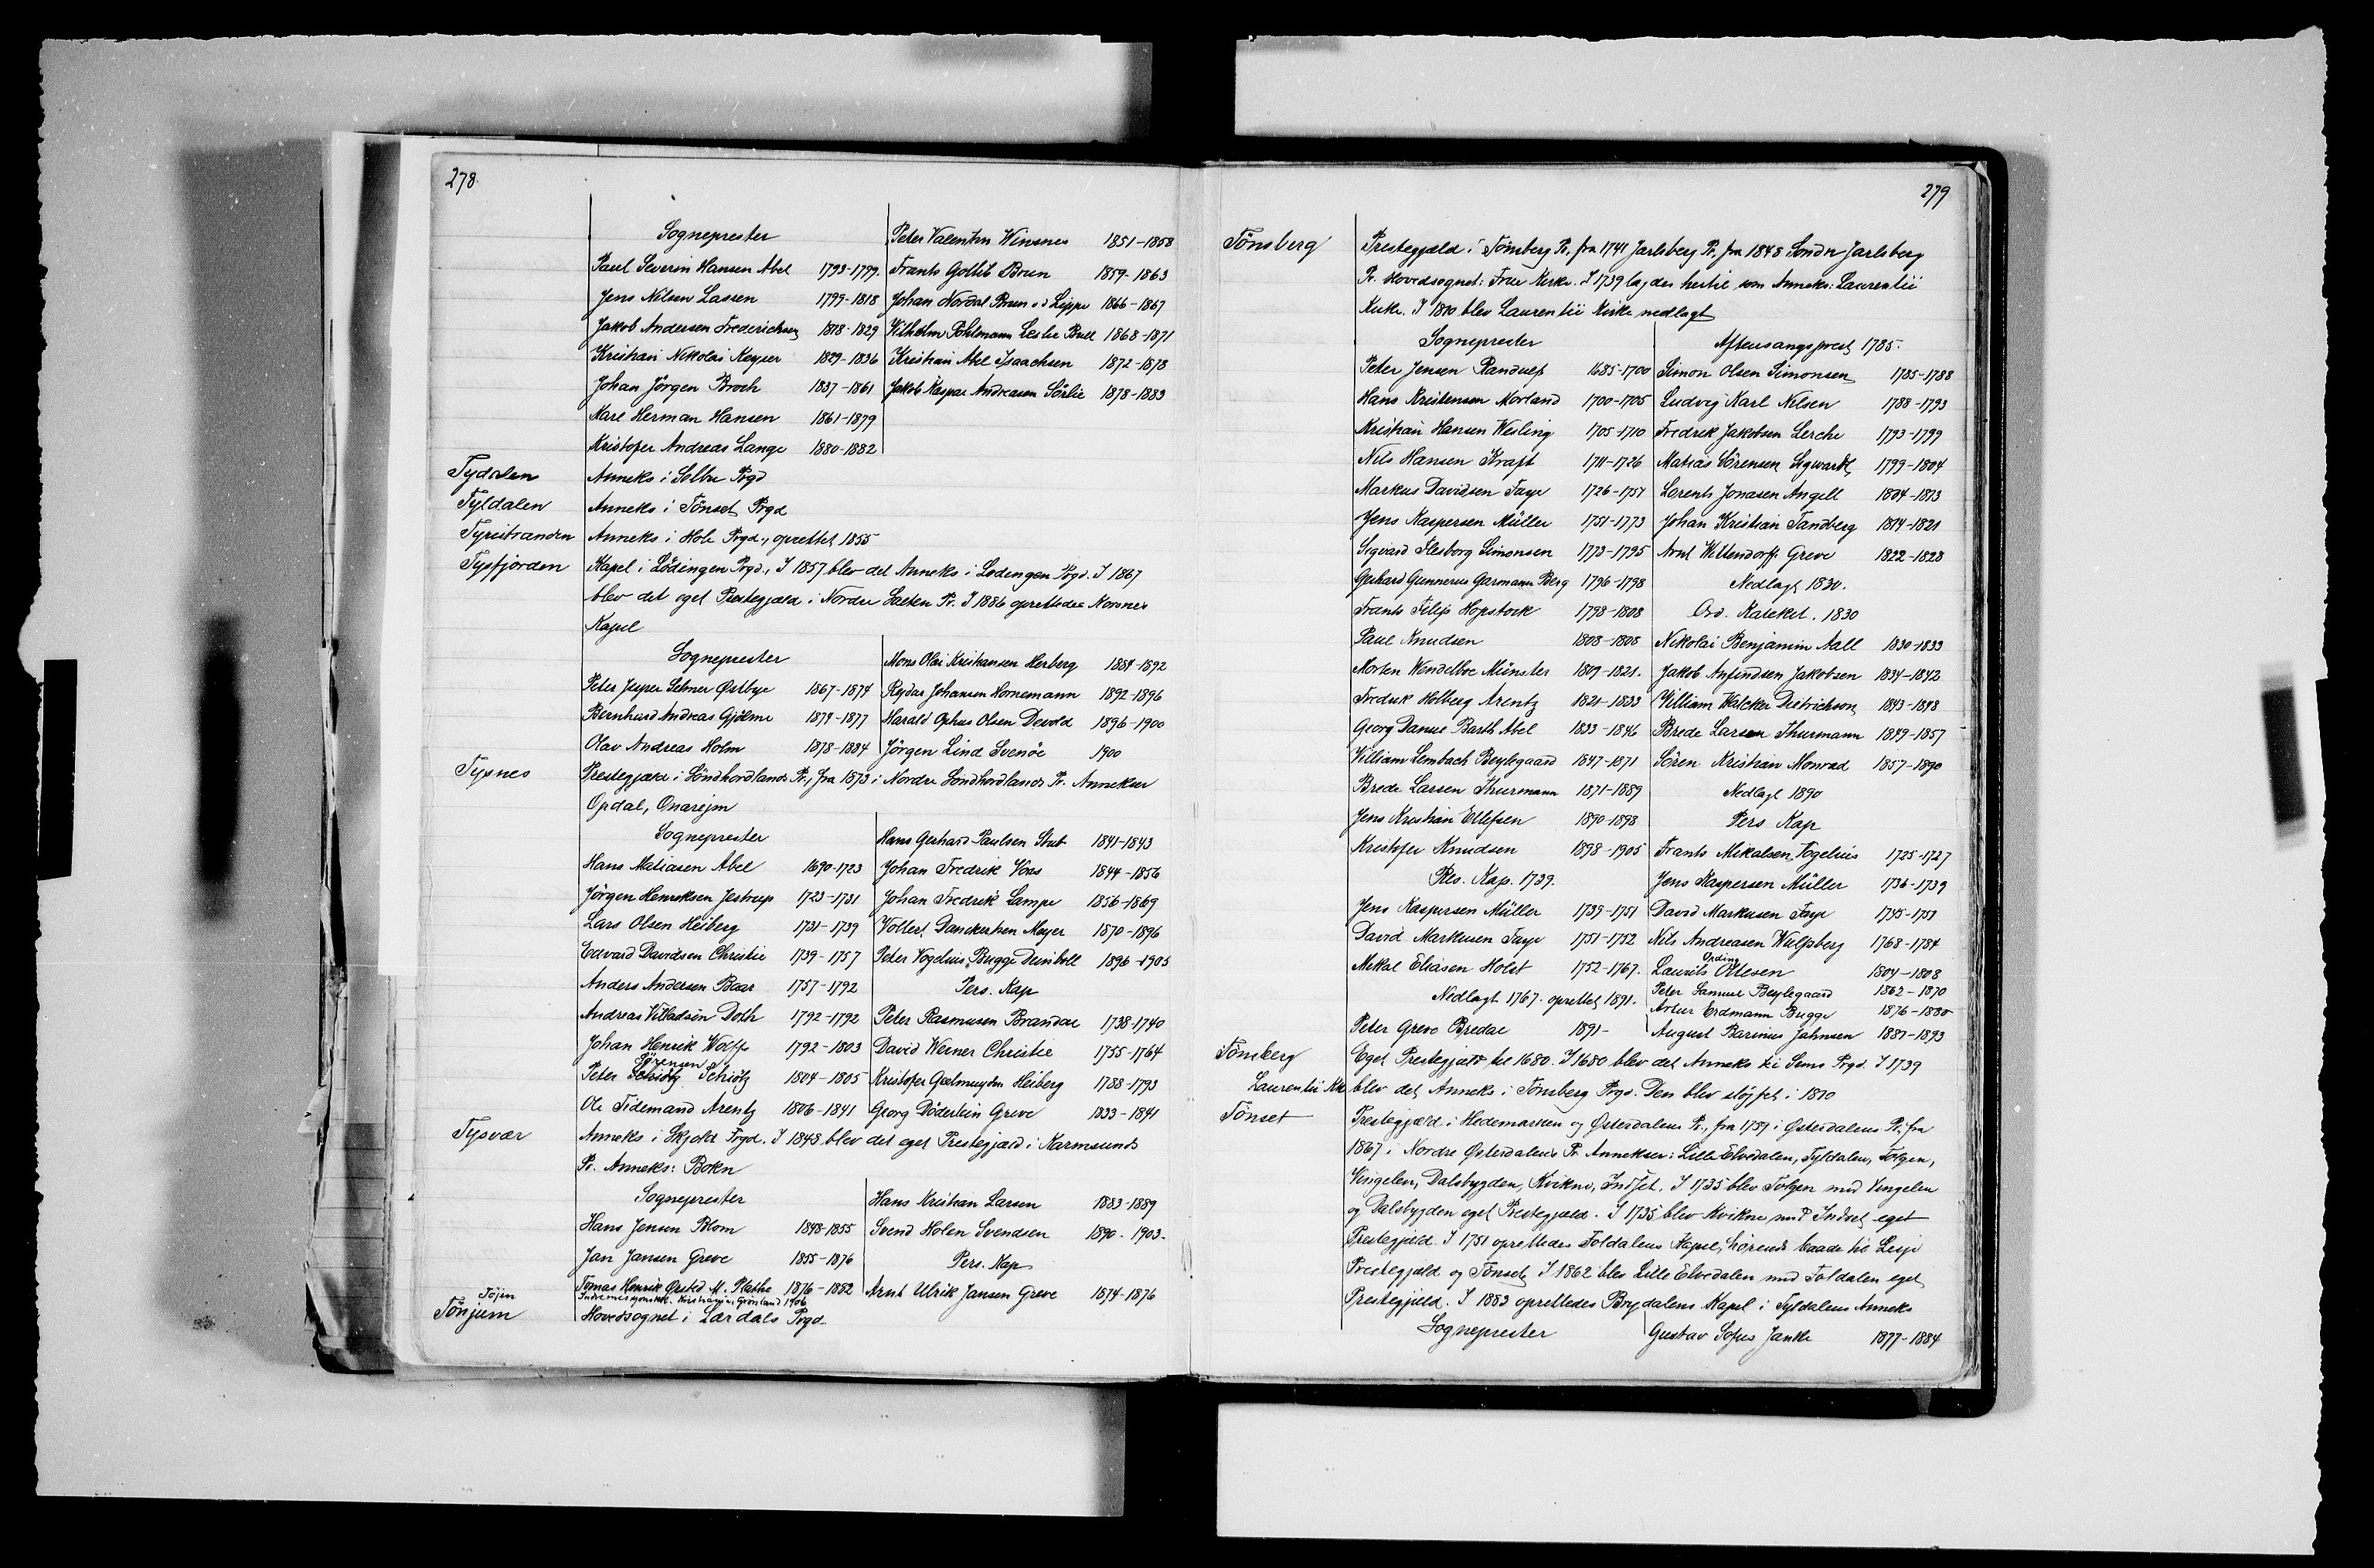 278.
Sogneprester
Paul Severin Hansen Abel 1793-1799.
Jens Nilsen Lassen 1799-1818
Jakob Andersen Frederichsen 1818-1829
Kristian Nikolai Keyser 1829-1836
Johan Jörgen Broch 1837-1861
Karl Herman Hansen 1861-1879
Kristofer Andreas Lange 1880-1882
Peter Valentin Winsnes 1851-1858
Frants Gottlib Brun 1859-1863
Johan Nordal Brun 1866-1867
Vilhelm Pohlmann Leslie Bull 1868-1871
Kristian Abel Isaachsen 1872-1878
Jakob Kaspar Andreasen Sörlie 1878-1883
Tydalen Anneks i Selbu Prgd
Tyldalen Anneks i Tönset Prgd
Tyristranden Anneks i Hole Prgd., oprettet 1855
Tysfjorden Kapel i Lödingen Prgd., I 1857 blev det Anneks i Lodingen Prgd. I 1867
blev det eget Prestegjæld i Nordre Salten Pr. I 1886 oprettedes Korsnes
Kapel
Sogneprester
Peter Jesper Selmer Østbye 1867-1874
Bernhard Andreas Gjölme 1874-1877
Olav Andreas Holm 1878-1884
Mons Olai Kristiansen Herberg 1884-1892
Reydar Johansen Hornemann 1892-1896
Harald Ophus Olsen Devold 1896-1900
Jörgen Lind Svenöe 1900
Tysnes Prestegjæld i Söndhordlands Pr., fra 1873 i Nordre Söndhordlands Pr. Annekser
Opdal, Onarejm
Sogneprester
Hans Matiasen Abel 1690-1723
Jörgen Henriksen Jestrup 1723-1731
Lars Olsen Heiberg 1731-1739
Edvard Davidsen Christie 1739-1757
Anders Andersen Baar 1757-1792
Andreas Villadsen Doth 1792-1792
Johan Henrik Wolff 1792-1803
Sörensen
Peter Schiötz Schiötz 1804-1805
Ole Tidemand Arentz 1806-1841
Hans Gerhard Paulsen Stub 1841-1843
Johan Fredrik Voss 1844-1856
Johan Fredrik Lampe 1856-1869
Vollert Danckertsen Meyer 1870-1896
Peter Vogelius Bugge Deinboll 1896-1905
Pers. Kap
Peter Rasmusen Brandal 1738-1740
David Werner Christie 1755-1764
Kristofer Geelmuyden Heiberg 1788-1793
Georg Döderlein Greve 1833-1841
Tysvær Anneks i Skjold Prgd. I 1848 blev det eget Prestegjæld i Karmsunds
Pr. Anneks: Bokn
Sogneprester
Hans Jensen Blom 1848-1855
Jan Jansen Greve 1855-1876
Tomas Henrik Ørsted M. Plathe 1876-1882
Hans Kristian Larsen 1883-1889
Svend Holen Svendsen 1890-1903.
Pers. Kap
Arnt Ulrik Jansen Greve 1874-1876
Töjen Kristiania, Grönland 1906
Tönjum Hovedsognet i Lærdals Prgd.
279
Tönsberg Prestegjæld i Tönsberg Pr., fra 1741 Jarlsberg Pr., fra 1848 Söndre Jarlsberg
Pr. Hovedsognet: Frue Kirke. I 1739 lagdes hertil som Anneks: Laurentii
Kirke. I 1810 blev Laurentii Kirke nedlagt
Sogneprester
Peter Jensen Randulf 1685-1700
Hans Kristensen Morland 1700-1705
Kristian Hansen Wesling 1705-1710
Nils Hansen Kraft 1711-1726
Markus Davidsen Faye 1726-1751
Jens Kaspersen Müller 1751-1773
Sigvard Flesborg Simonsen 1773-1795
Gerhard Gunnerus Garmann Berg 1796-1798
Frants Filip Hopstock 1798-1808
Paul Knudsen 1808-1808
Morten Wendelboe Münster 1809-1821.
Fredrik Holberg Arentz 1821-1833
Georg Daniel Barth Abel 1833-1846
William Lembach Beylegaard 1847-1871
Brede Larsen Thurmann 1871-1889
Jens Kristian Ellefsen 1890-1898
Kristofer Knudsen 1898-1905
Res. Kap. 1739.
Jens Kaspersen Müller 1739-1751
David Markusen Faye 1751-1752
Mikal Eliasen Holst 1752-1767.
Nedlagt 1767. oprettet 1891.
Peter Greve Bredal 1891-
Aftensangsprest 1785.
Simon Olsen Simonsen 1785-1788
Ludvig Karl Nilsen 1788-1793
Fredrik Jakobsen Lerche 1793-1799
Matias Sörensen Sigwardt 1799-1804
Lorents Jonasen Angell 1804-1813
Johan Kristian Tandberg 1814-1821
Arnt Wittendorff Greve 1822-1828
Nedlagt 1830.
Ord. Kateket. 1830
Nikolai Benjamin Aall 1830-1833
Jakob Anfindsen Jakobsen 1834-1842
William Walcker Dietrichson 1843-1848
Brede Larsen Thurmann 1849-1857
Sören Kristian Monrad 1857-1890
Nedlagt 1890
Pers Kap
Frants Mikalsen Vogelius 1725-1727
Jens Kaspersen Müller 1736-1739
David Markusen Faye 1745-1751
Nils Andreasen Wulfsberg 1768-1784
Oving
Laurits Ottesen 1804-1808
Peter Samuel Beylegaard 1862-1870
Artur Erdmann Bugge 1876-1880
August Barinius Jahnsen 1887-1893
Tönsberg Eget Prestegjæld til 1680. I 1680 blev det Anneks til Sems Prgd. I 1739
Laurentii Kke blev det Anneks i Tönsberg Prgd. Den blev slöjfet i 1810
Tönset Prestegjæld i Hedemarken og Østerdalens Pr., fra 1751 i Østerdalens Pr., fra
1867 i Nordre Østerdalens Pr. Annekser: Lille Elvedalen, Tyldalen, Tolgen,
Vingelen, Dalsbygden, Kvikne, Indset. I 1735 blev Tolgen med Vingelen
og Dalsbygden eget Prestegjæld. I 1735 blev Kvikne med Indset eget
Prestegjæld. I 1751 oprettedes Foldalens Kapel, hörende baade til Lesje
Prestegjæld og Tönset. I 1862 blev Lille Elvedalen med Foldalen eget
Prestegjæld. I 1883 oprettedes Brydalens Kapel i Tyldalens Anneks
Sogneprester Gustav Sofus Janke 1877-1884